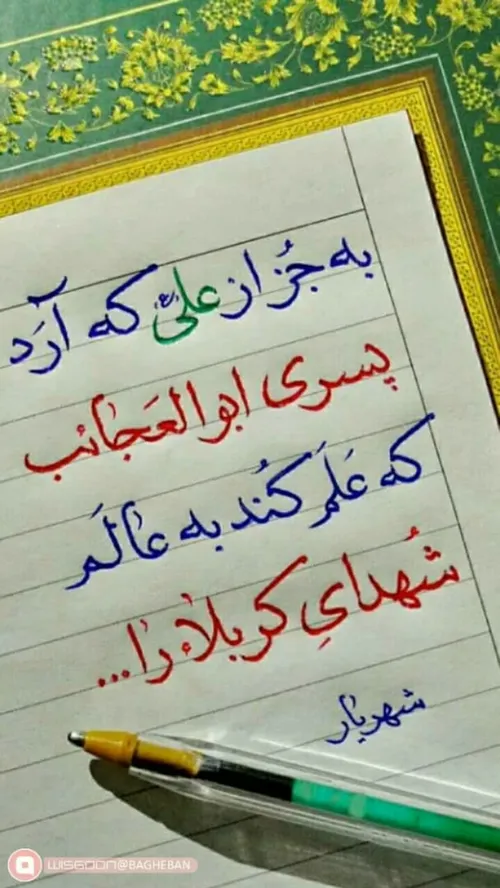 به جُز از علی؏ که آرَد
پسری ابوالعَجائب
که عَلَم کُند به عالَم
شُهدایِ کربلاء را...
شهریار
WISGOON@BAGHEBAN